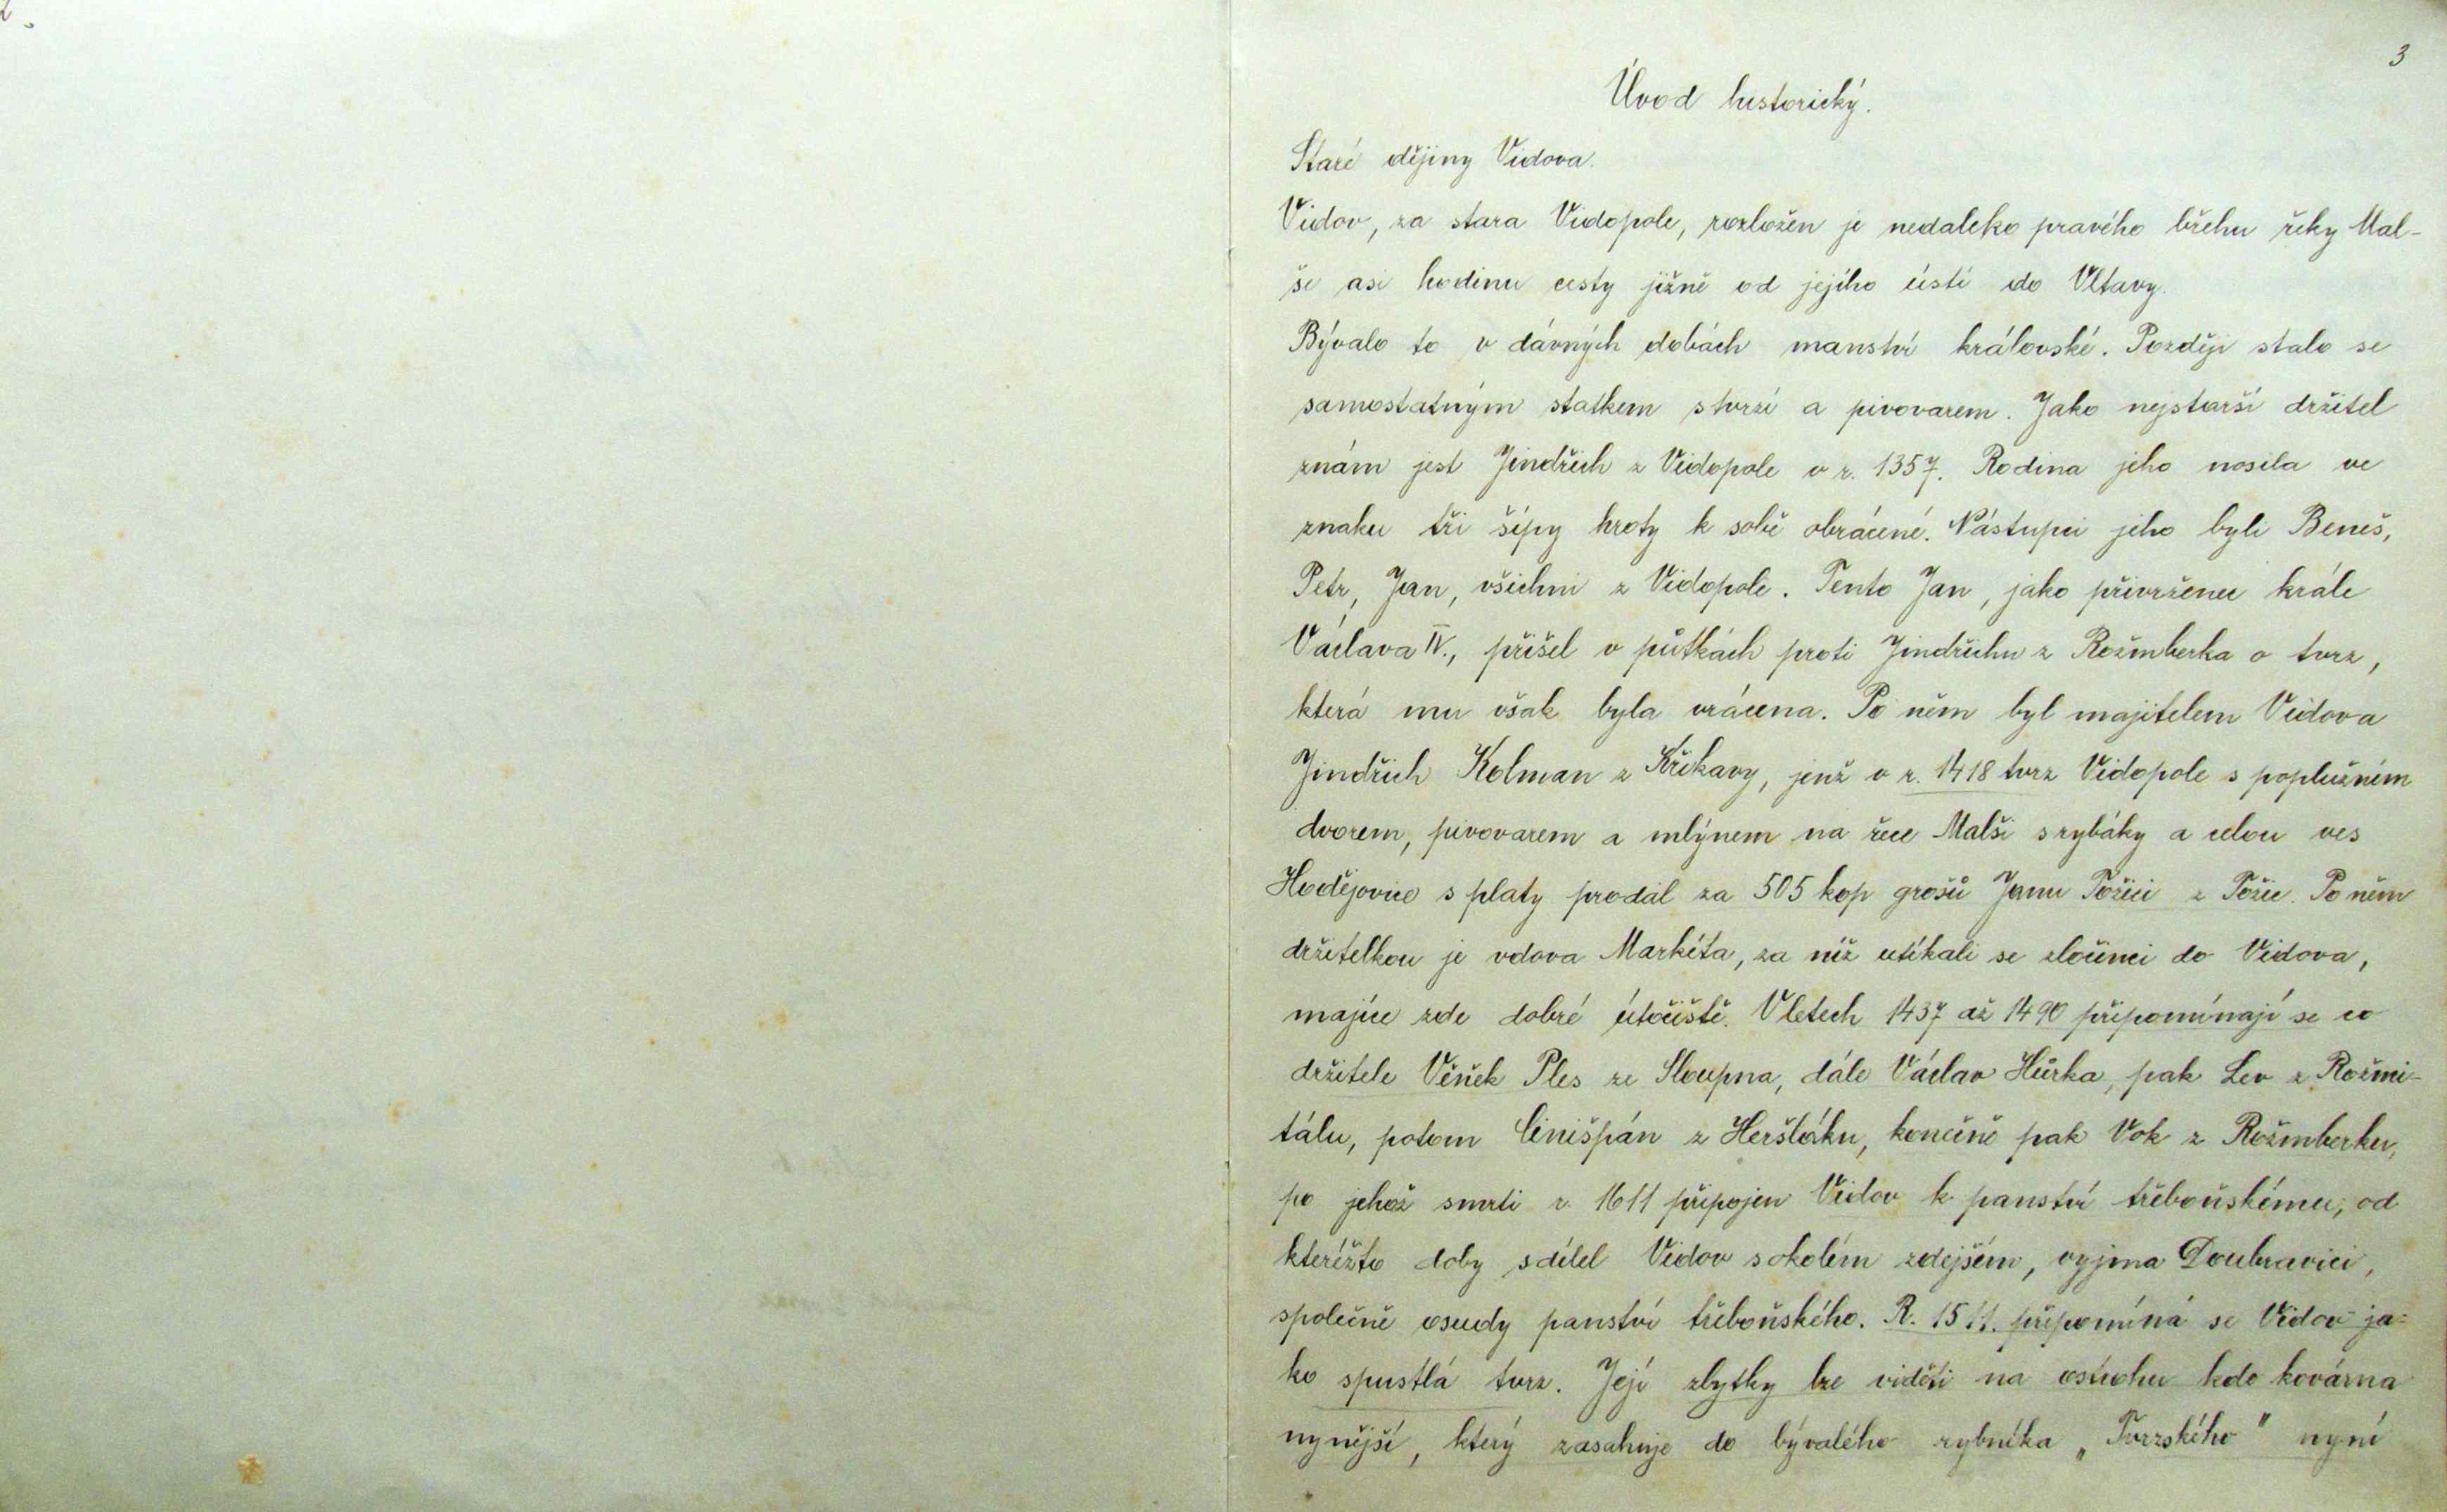 3
Úvod historický.
Staré dějiny Vidova.
Vidov, za stara Vidopole, rozložen je nedaleko pravého břehu řeky Mal-
še asi hodinu cesty jižně od jejího ústí do Vltavy.
Bývalo to v dávných dobách manství královské. Později stalo se
samostatným statkem s tvrzí a pivovarem. Jako nejstarší držitel
znám jest Jindřich z Vidopole v r. 1357. Rodina jeho nosila ve
znaku tři šípy hroty k sobě obrácené. Nástupci jeho byli Beneš,
Petr, Jan, všichni z Vidopole. Tento Jan, jako přívrženec krále
Václava IV., přišel v půtkách proti Jindřichu z Rožmberka o tvrz,
která mu však byla vrácena. Po něm byl majitelem Vidova
Jindřich Kolman z Křikavy, jenž v r. 1418 tvrz Vidopole s poplužním
dvorem, pivovarem a mlýnem na řece Malši s rybáky a celou ves
Hodějovice s platy prodal za 505 kop grošů Janu Požici z Požic. Po něm
držitelkou je vdova Markéta, za níž utíkali se zločinci do Vidova,
majíce zde dobré útočiště. V letech 1437 až 1490 připomínají se co
držitele Věněk Ples ze Sloupna, dále Václav Hůrka, pak Lev z Rožmi-
tálu, potom Cinišpán z Heršláku, konečně pak Vok z Rožmberku,
po jehož smrti r. 1611 připojen Vidov k panství třeboňskému, od
kteréžto doby sdílel Vidov s okolím zdejším, vyjma Doubravici,
společně osudy panství třeboňského. R. 1511. připomíná se Vidov ja-
ko spustlá tvrz. Její zbytky lze viděti na ostrohu kde kovárna
nynější, který zasahuje do bývalého rybníka „Tvrzského" nyní